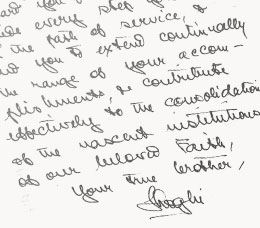 and you
ide every step
the path of service, &
aid you to extend continually
the range of your accom-
plishments, & contribute
effectively to the consolidation
of the nascent institutions
of our beloved Faith,
Your true brother,
Shoghi